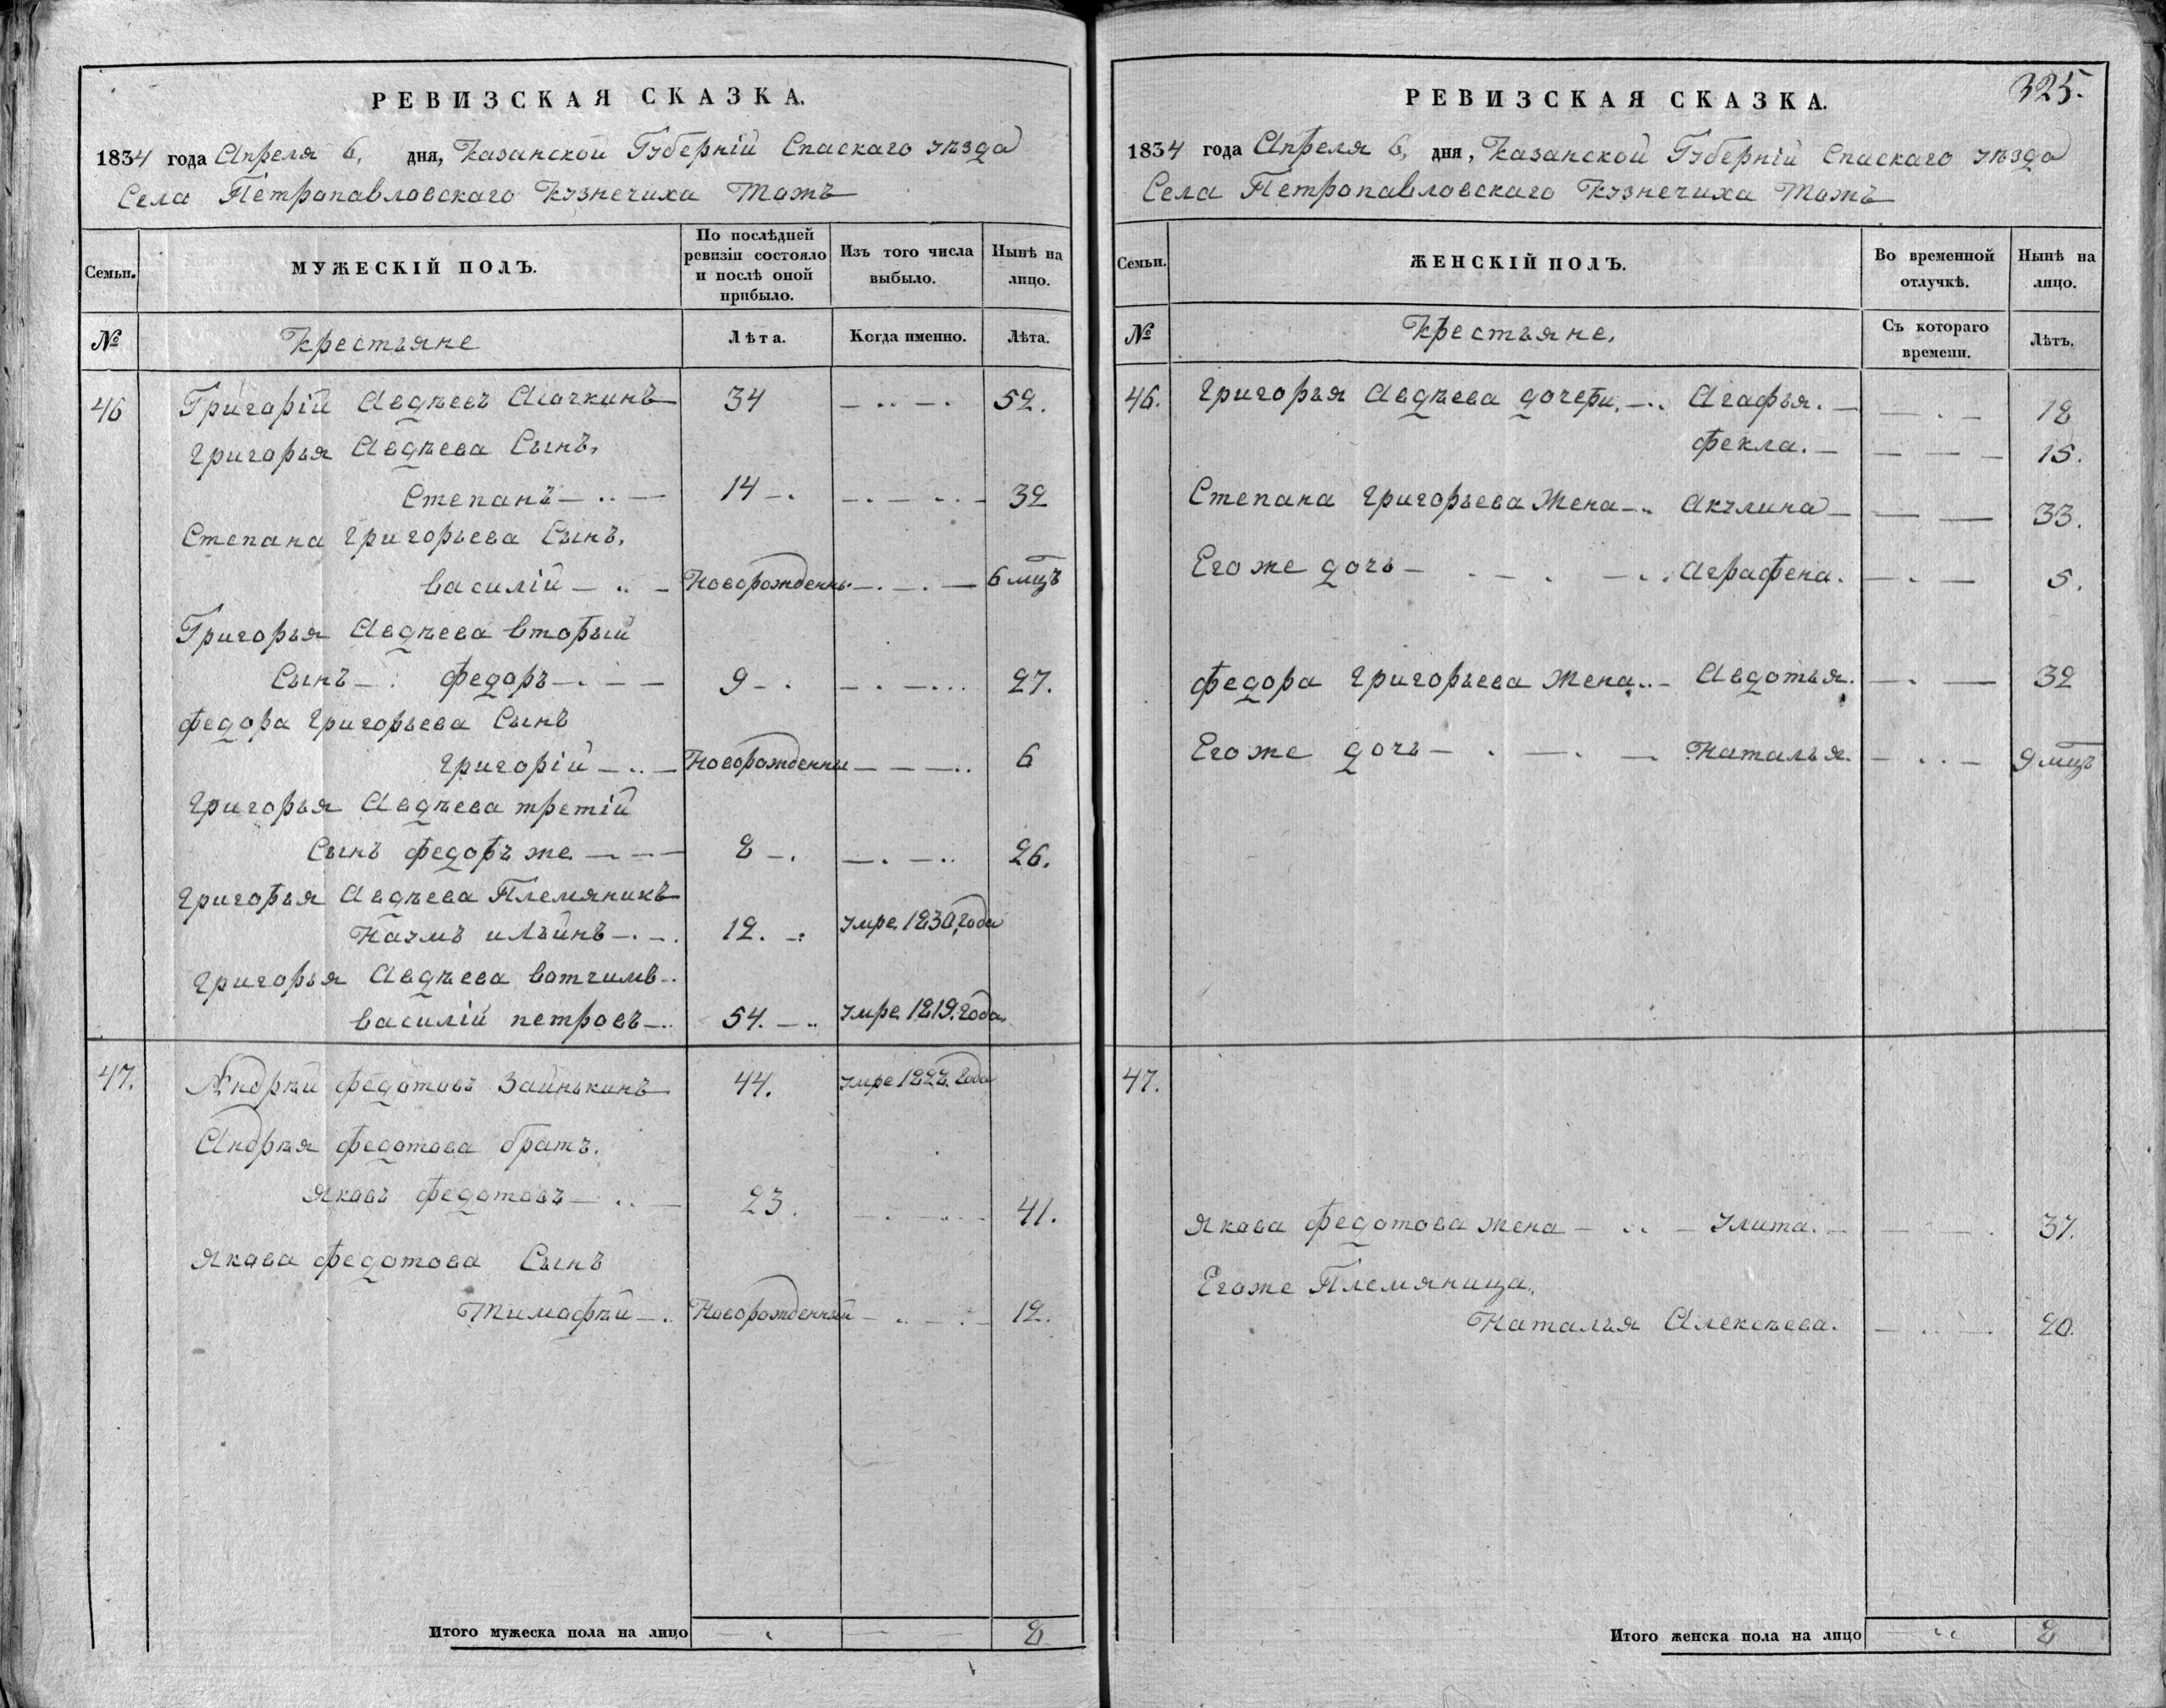 РЕВИЗСКАЯ СКАЗКА.
1834 года Апреля 6, дня, Казанской Губерніи Спаскаго уѣзда
Села Петропавловскаго Кузнечиха Тожъ
Семьи. МУЖЕСКІЙ ПОЛЪ. По послѣдней ревизіи состояло и послѣ оной прибыло. Изъ того числа выбыло. Нынѣ на лицо.
№ Крестьяне Лѣта. Когда именно. Лѣта.
46 Григорій Авдѣевъ 34 52.
Григорья Авдѣева Сынъ,
Степанъ 14 32
Степана Григорьева Сынъ,
Василій Новорожденны 6 мцъ
Григорья Авдѣева вторый
Сынъ федоръ 9 27.
федора Григорьева Сынъ
Григорій Новорожденны 6
Григорья Авдѣева третій
Сынъ федоръ же 8 26.
Григорья Авдѣева Племяникъ
Наумъ ильинъ 12. умре 1830, года
Григорья Авдѣева вотчимъ
василій петровъ 54. умре 1819. года
47. Андрѣй федотовъ Зайнькинъ 44. умре года
Андрѣя федотова братъ.
яковъ федотовъ 23. 41.
якова федотова Сынъ
Тимофѣй Новорожденный 12.
Итого мужеска пола на лицо 8
325.
РЕВИЗСКАЯ СКАЗКА.
1834 года Апреля 6, дня, Казанской Губерніи Спаскаго уѣзда
Села Петропавловскаго Кузнечиха Тожъ
Семьи. ЖЕНСКІЙ ПОЛЪ. Во временной отлучкѣ. Нынѣ на лицо.
№ Крестьяне. Съ котораго времени. Лѣтъ.
46. Григорья Авдѣева дочери, Агафья. 18
фекла. 15.
Степана Григорьева Жена Акулина 33.
Его же дочь Аграфена. 5.
федора Григорьева Жена Авдотья. 32
Его же дочь Наталья. 9 мцъ
47.
якова федотова жена Улита. 37.
Егоже Племяница,
Наталья Алексѣева. 20.
Итого женска пола на лицо 8